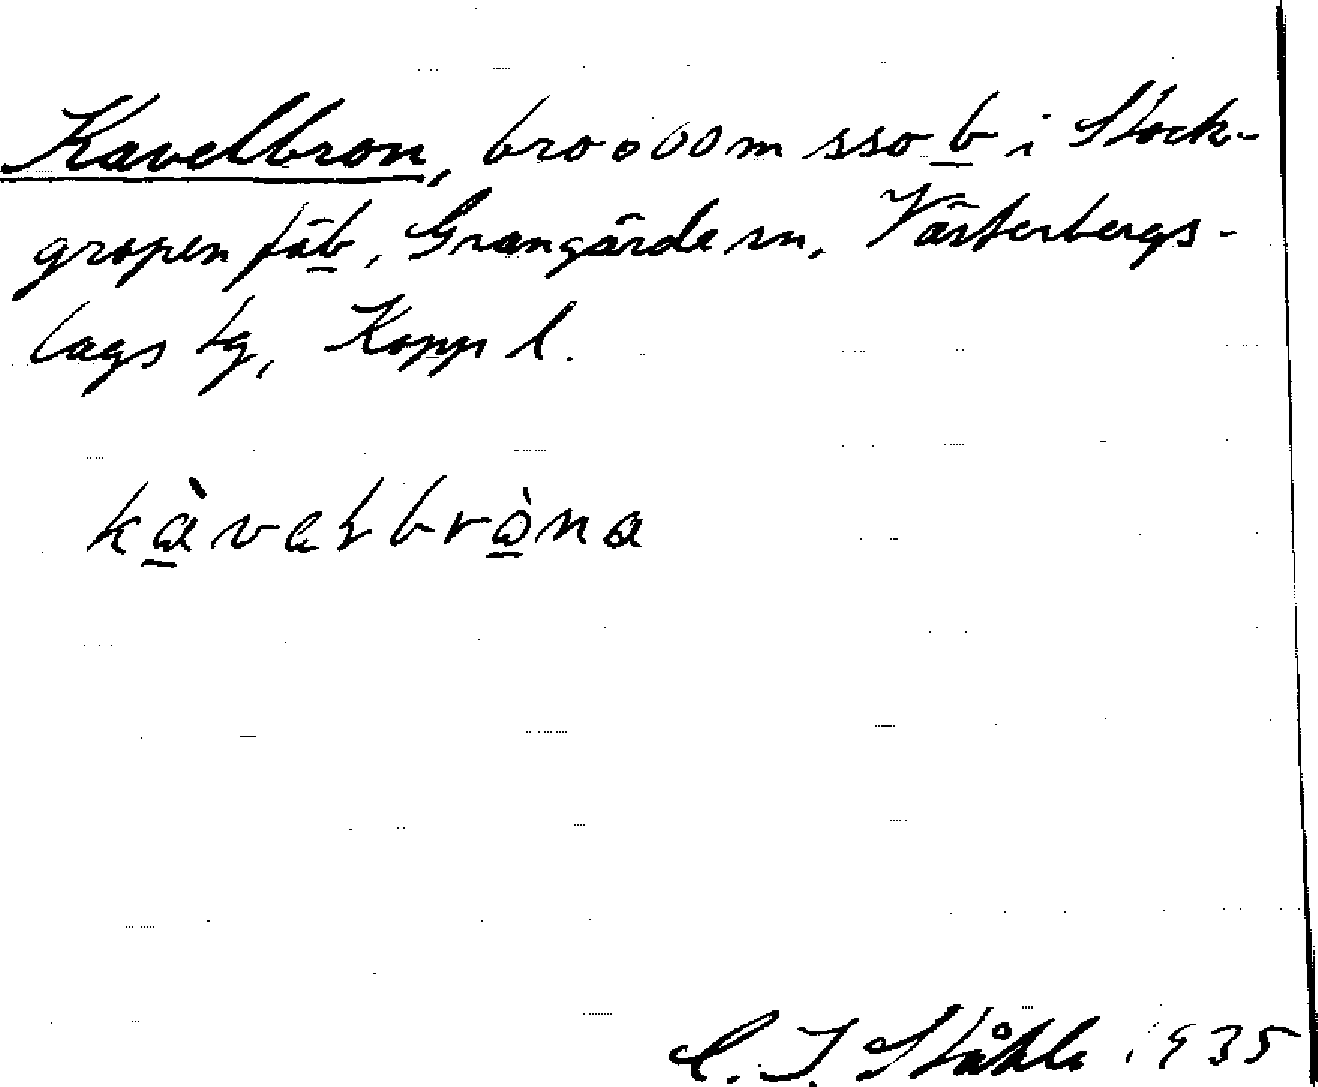 Kavelbron, bro 600 m sso b i Stock-
gropen fäb, Grangärde sn, Västerbergs-
lags tg, Kopp l.
kàvaɫbròna
C. I. Ståhle 1935